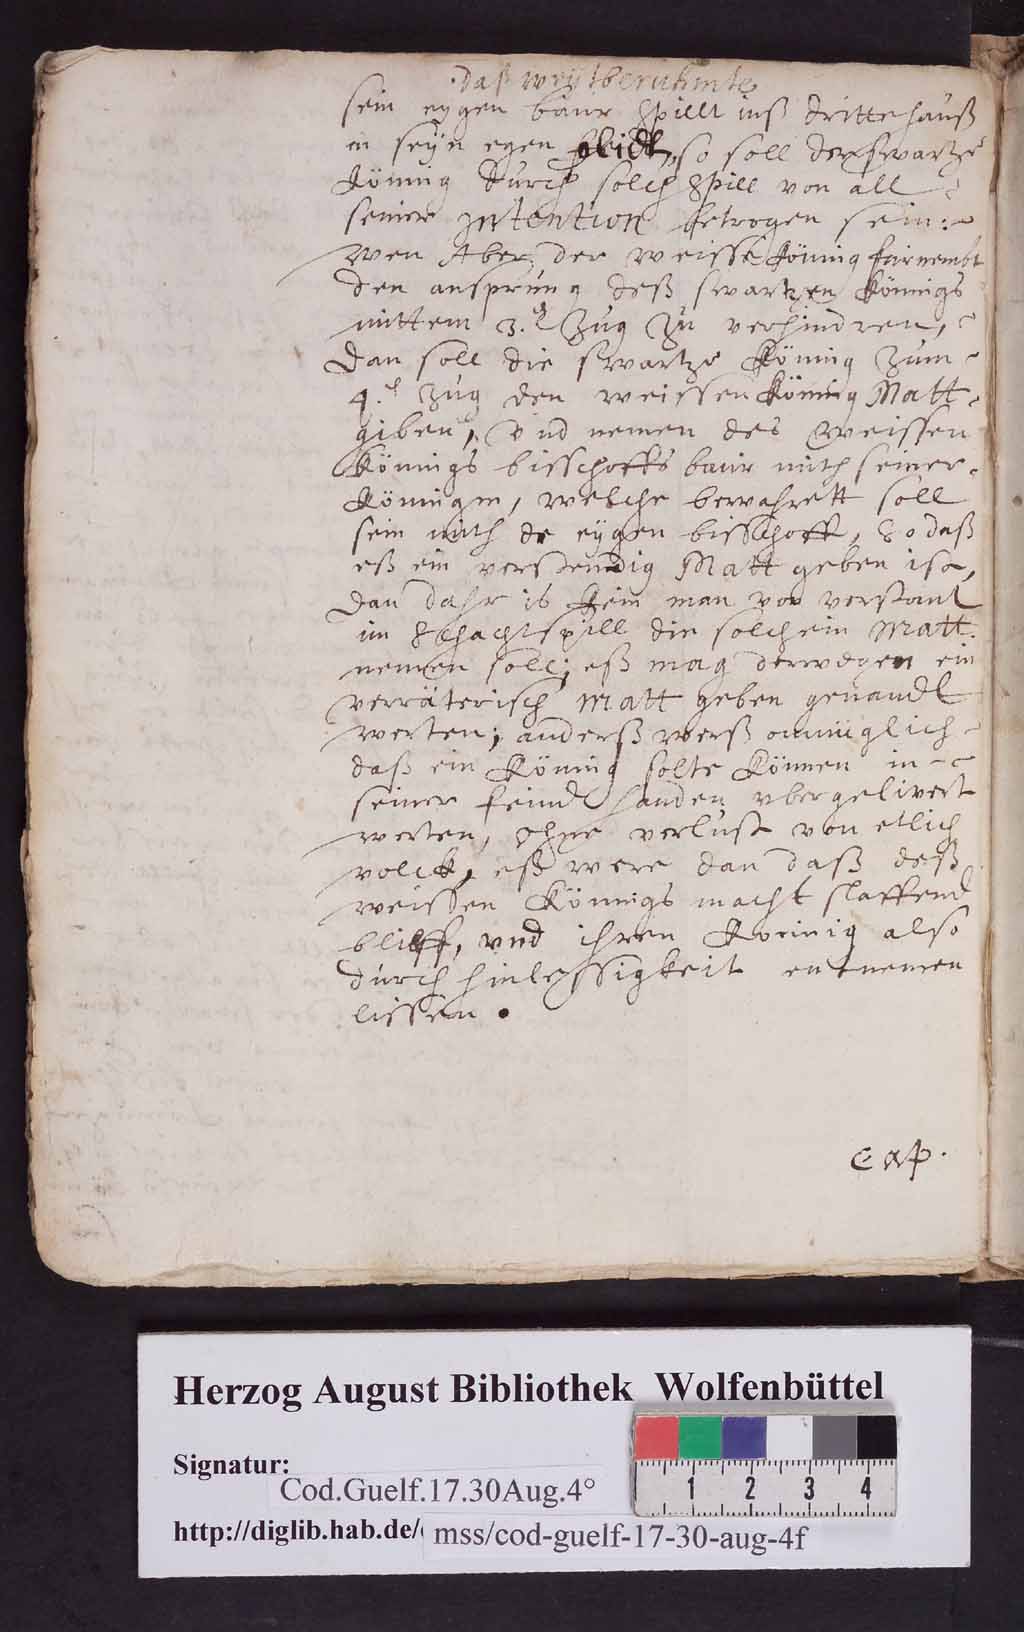 daß weytberuhmte
sein eygen baur spillt inß dritte hauß
in seyn egen glidt, so soll der swartze
Könnig durch solch spill von all
seiner intention betrogen sein:
wen Aber der weisse Könnig fürnembt
den ansprung deß swartzen Könnigs
mittem 3. Zug zu verhindren,
Dan soll die swartze Könnig zum
4. Zug den weissen Könnig Matt
giben, Und nemen des Weissen
Könnigs bisschoffs baur mith seiner
Könnigin, welche bewahrett soll
sein mith de eygen bisschoff, so daß
eß ein verstendig Matt geben ist,
dan dahr is kein man von verstant
im schachtspill die solch ein Matt
nemen soll; eß mag derwegen ein
verräterisch Matt geben genandt
werten; anderß werß onmüglich
daß ein Könnig solte Können in
seiner feind handen ubergelivert
werten, ohne verlust von etlich
volck, eß were dan daß deß
weissen Könnigs macht slaffend
blieff, und ihren Koennig also
durch hinlessigkeit entnemen
liessen.
Cap.
Herzog August Bibliothek Wolfenbüttel
Signatur:
Cod.Guelf.17.30Aug.4°
http://diglib.hab.de/
mss/cod-guelf-17-30-aug-4f
1 2 3 4